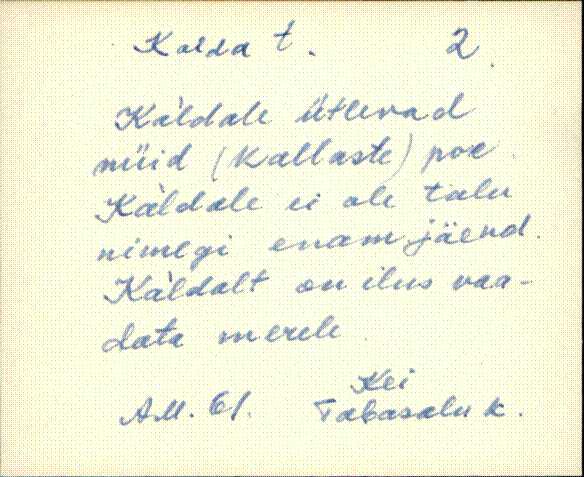 Kalda t. 2.
Kàldale ütlevad
nüid (Kallaste) poe.
Kàldale ei ole talu
nimegi enam jäend.
Kàldalt on ilus vaa-
data merele.
Kei
A.M. 61. Tabasalu k.